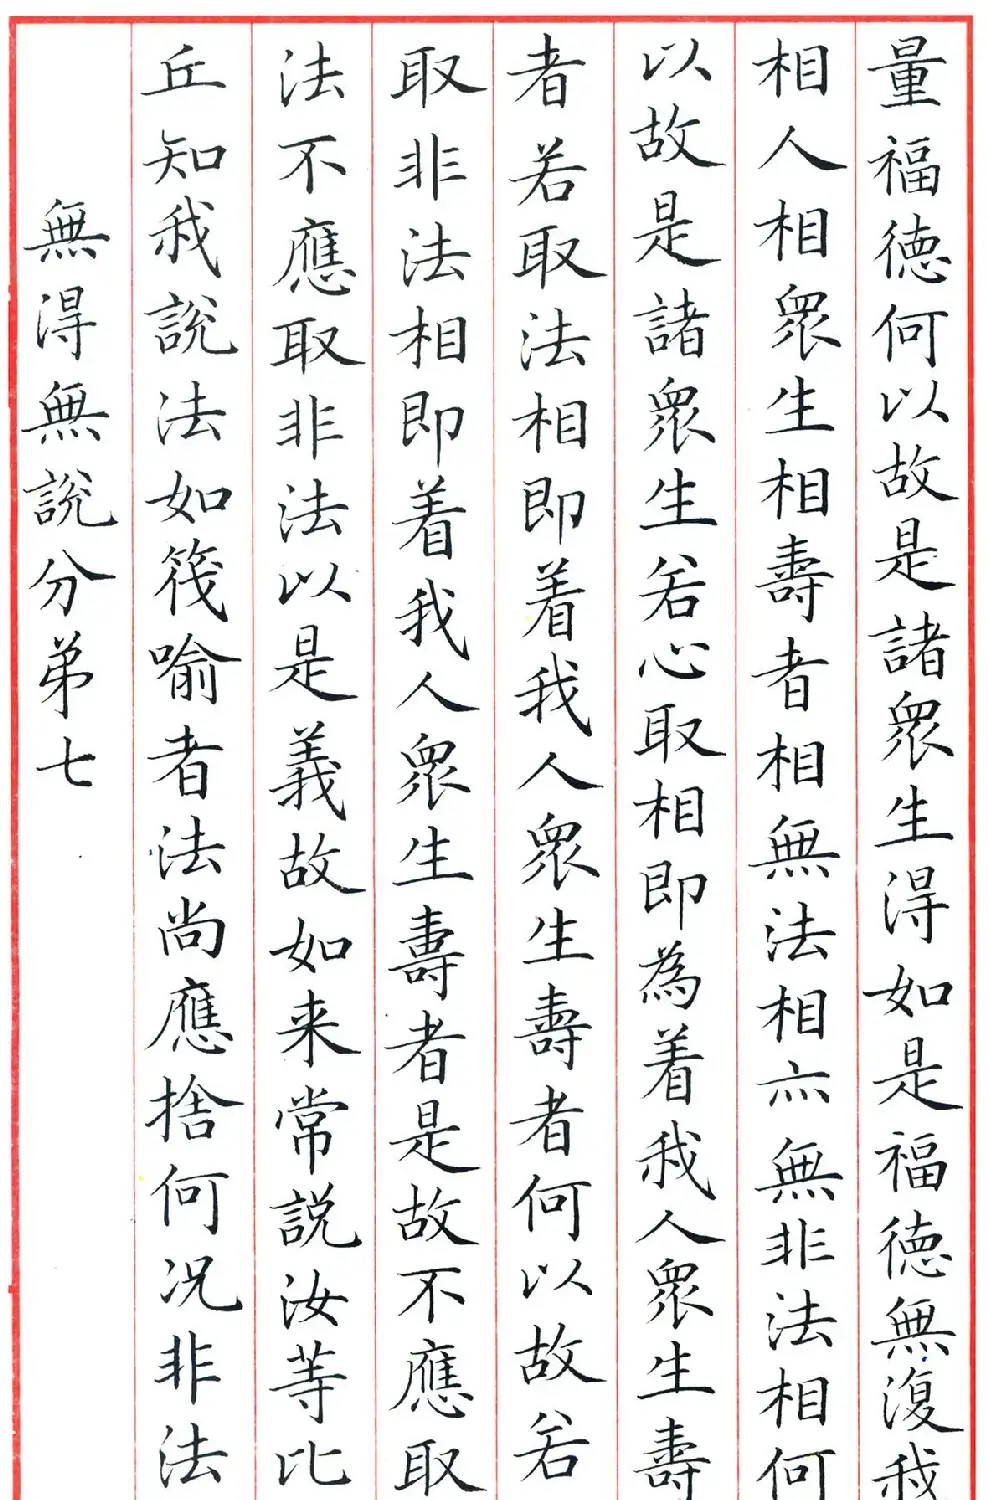 量福德何以故是諸衆生得如是福德無復我
相人相衆生相壽者相無法相亦無非法相何
以故是諸衆生若心取相即為着我人衆生壽
者若取法相即着我人衆生壽者何以故若
取非法相即着我人衆生壽者是故不應取
法不應取非法以是義故如来常説汝等比
丘知我說法如筏喻者法尚應捨何况非法
無得無說分弟七